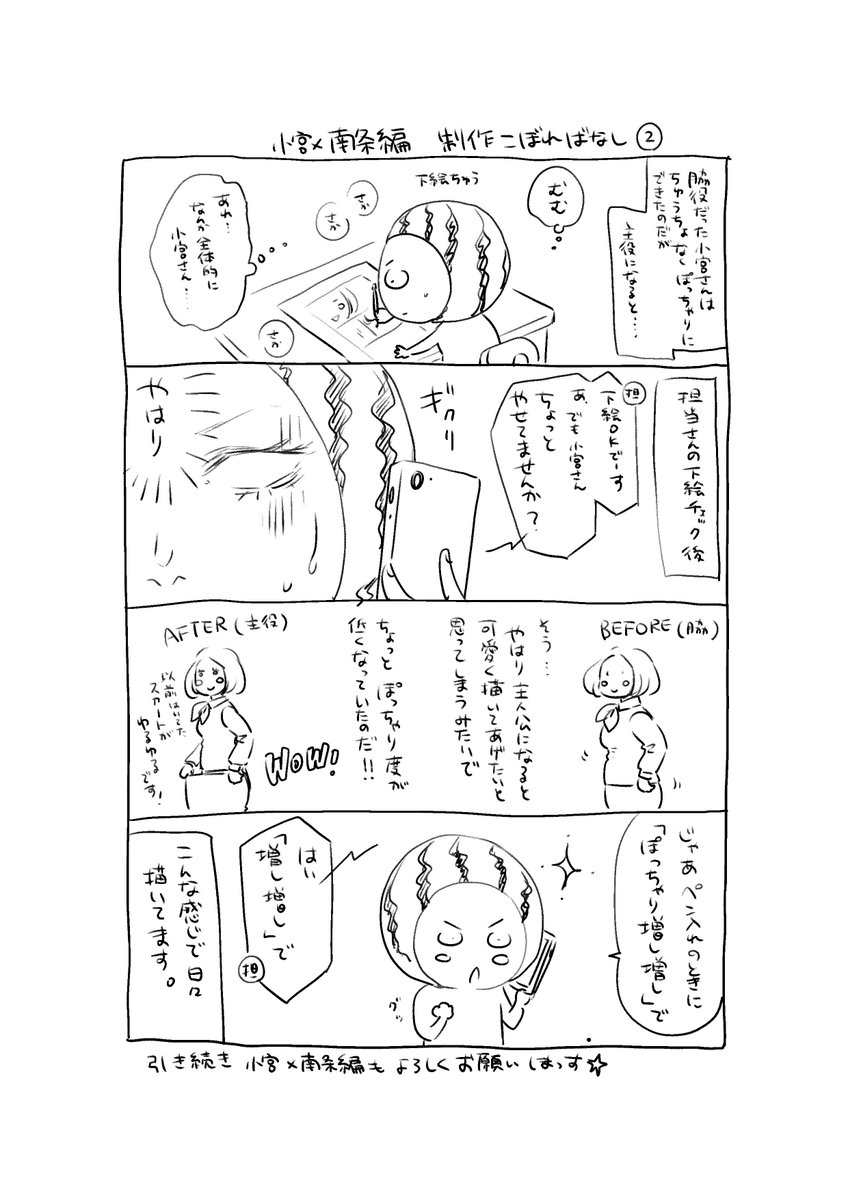 小宮×南条編 制作こぼればなし②
脇役だった小宮さんは
ちゅうちょなくぽっちゃりに
できたのだが
主役になると…
むむ
下絵ちゅう
さか
さか
さか
あれ…
なんか全体的に
小宮さん…
担当さんの下絵チェック後
担
下絵OKでーす
あ、でも小宮さん
ちょっと
やせてませんか?
ギクリ
やはり
BEFORE(脇)
そう…
やはり主人公になると
可愛く描いてあげたいと
思ってしまうみたいで
ちょっとぽっちゃり度が
低くなっていたのだ!!
AFTER(主役)
WOW!
以前はいてた
スカートが
ゆるゆる
です!
じゃあペン入れのときに
「ぽっちゃり増し増し」で
グッ
はい
「増し増し」で
担
こんな感じで日々
描いてます。
引き続き 小宮×南条編も よろしくお願いしまっす☆